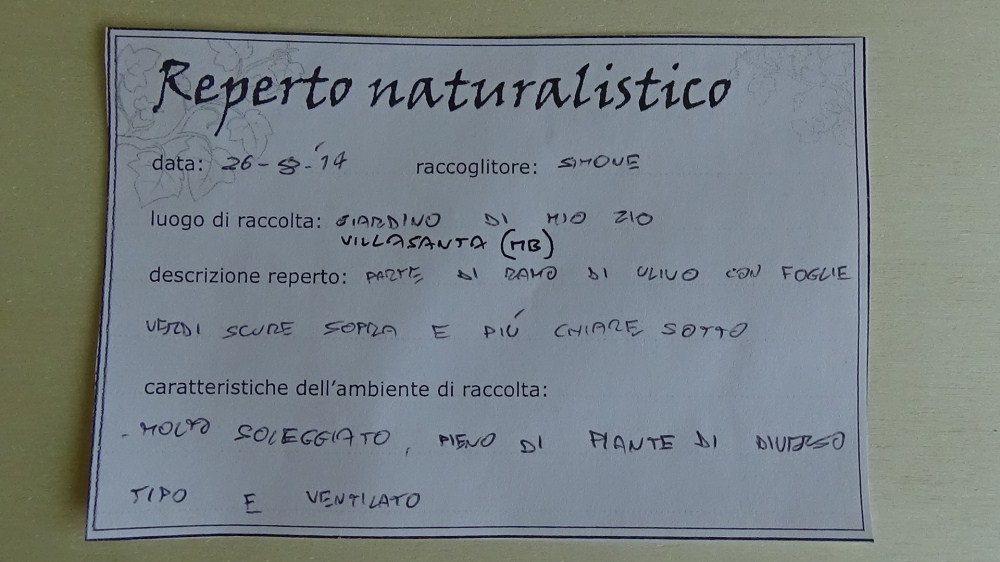 Reperto naturalistico
data: 26-8-'14 raccoglitore: SIMONE
luogo di raccolta: GIARDINO DI MIO ZIO
VILLASANTA (MB)
descrizione reperto: PARTE DI RAMO DI ULIVO CON FOGLIE
VERDI SCURE SOPRA E PIÚ CHIARE SOTTO
caratteristiche dell'ambiente di raccolta:
- MOLTO SOLEGGIATO, PIENO DI PIANTE DI DIVERSO
TIPO E VENTILATO